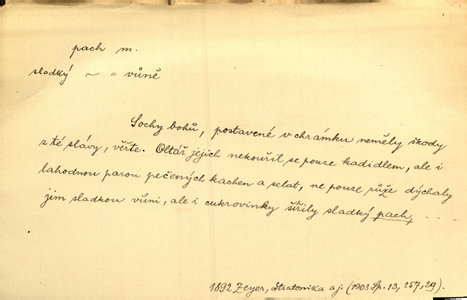 pach m.
sladký ~ = vůně
Sochy bohů, postavené v chrámku neměly škody
z té slávy, věřte. Oltář jejich nekouřil se pouze kadidlem, ale i
lahodnou parou pečených kachen a selat, ne pouze růže dýchaly
jim sladkou vůni, ale i cukrovinky šířily sladký pach, – – – –
1892 Zeyer, Stratonika a j. (1903 Sp. 13, 257, 29).